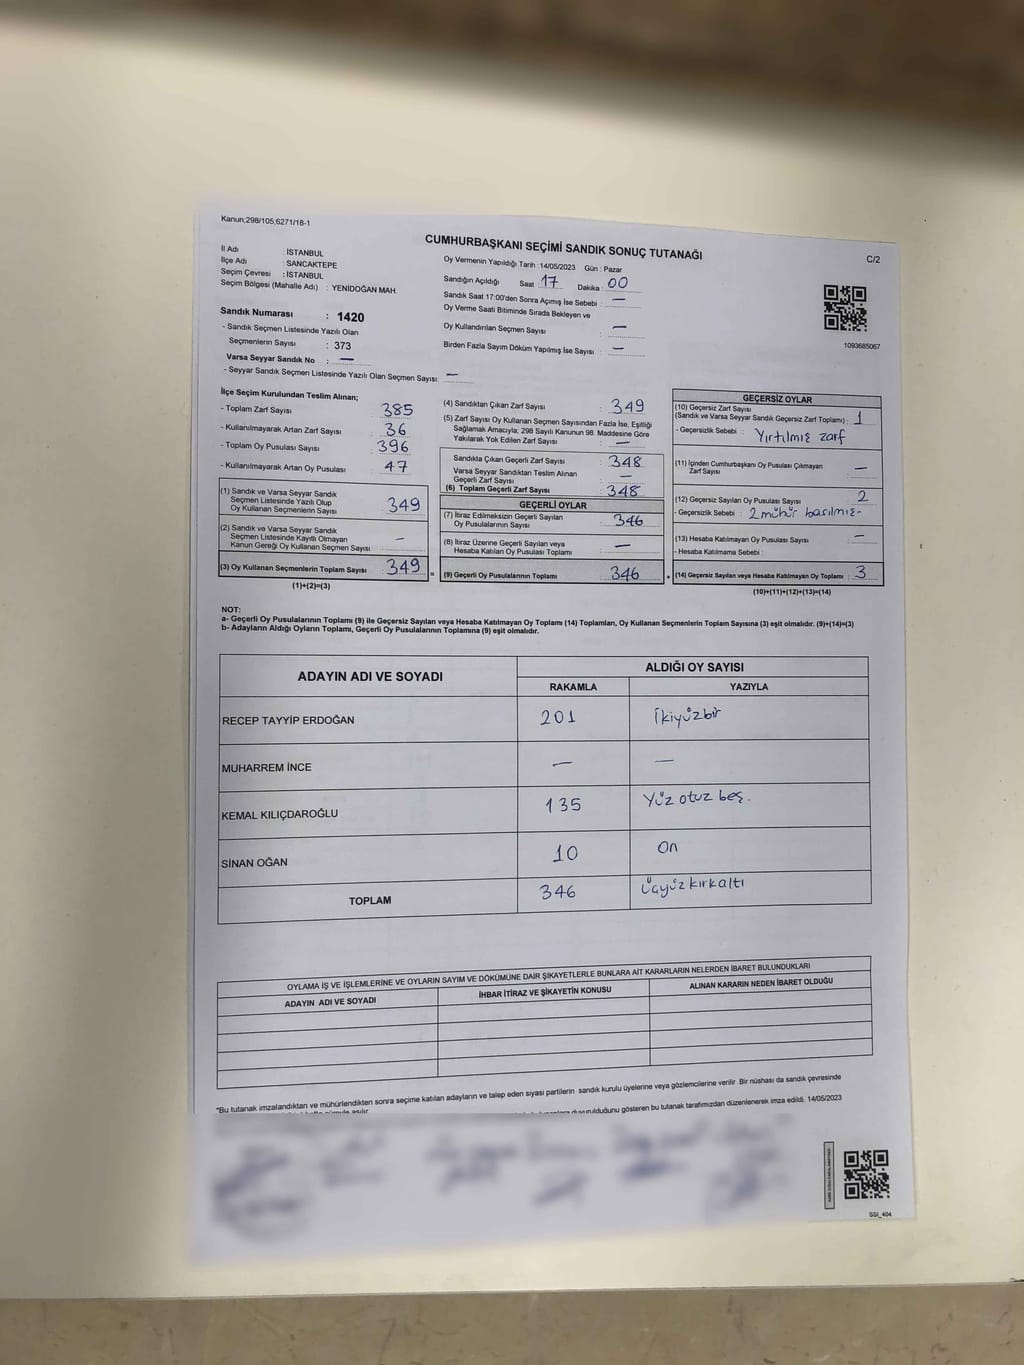 Kanun,298/105,6271/18-1
CUMHURBAŞKANI SEÇİMİ SANDIK SONUÇ TUTANAĞI
C/2
İl Adı : İSTANBUL
İlçe Adı : SANCAKTEPE
Seçim Çevresi : İSTANBUL
Seçim Bölgesi (Mahalle Adı) : YENİDOĞAN MAH.
Sandık Numarası : 1420
- Sandık Seçmen Listesinde Yazılı Olan
Seçmenlerin Sayısı : 373
Varsa Seyyar Sandık No : —
- Seyyar Sandık Seçmen Listesinde Yazılı Olan Seçmen Sayısı: —
Oy Vermenin Yapıldığı Tarih :14/05/2023 Gün : Pazar
Sandığın Açıldığı Saat : 17 Dakika : 00
Sandık Saat 17:00'den Sonra Açımış İse Sebebi : —
Oy Verme Saati Bitiminde Sırada Bekleyen ve
Oy Kullandırılan Seçmen Sayısı : —
Birden Fazla Sayım Döküm Yapılmış İse Sayısı : —
1093685067
İlçe Seçim Kurulundan Teslim Alınan;
- Toplam Zarf Sayısı : 385
- Kullanılmayarak Artan Zarf Sayısı : 36
- Toplam Oy Pusulası Sayısı : 396
- Kullanılmayarak Artan Oy Pusulası : 47
(1) Sandık ve Varsa Seyyar Sandık
Seçmen Listesinde Yazılı Olup
Oy Kullanan Seçmenlerin Sayısı : 349
(2) Sandık ve Varsa Seyyar Sandık
Seçmen Listesinde Kayıtlı Olmayan
Kanun Gereği Oy Kullanan Seçmen Sayısı : —
(3) Oy Kullanan Seçmenlerin Toplam Sayısı : 349
(1)+(2)=(3)
(4) Sandıktan Çıkan Zarf Sayısı : 349
(5) Zarf Sayısı Oy Kullanan Seçmen Sayısından Fazla İse, Eşitliği
Sağlamak Amacıyla; 298 Sayılı Kanunun 98. Maddesine Göre
Yakılarak Yok Edilen Zarf Sayısı : —
Sandıkta Çıkan Geçerli Zarf Sayısı : 348
Varsa Seyyar Sandıktan Teslim Alınan
Geçerli Zarf Sayısı : —
(6) Toplam Geçerli Zarf Sayısı : 348
GEÇERLİ OYLAR
(7) İtiraz Edilmeksizin Geçerli Sayılan
Oy Pusulalarının Sayısı : 346
(8) İtiraz Üzerine Geçerli Sayılan veya
Hesaba Katılan Oy Pusulası Toplamı : —
(9) Geçerli Oy Pusulalarının Toplamı : 346
GEÇERSİZ OYLAR
(10) Geçersiz Zarf Sayısı
(Sandık ve Varsa Seyyar Sandık Geçersiz Zarf Toplamı) : 1
- Geçersizlik Sebebi : Yırtılmış zarf
(11) İçinden Cumhurbaşkanı Oy Pusulası Çıkmayan
Zarf Sayısı : —
(12) Geçersiz Sayılan Oy Pusulası Sayısı : 2
- Geçersizlik Sebebi : 2 mühür basılmış-
(13) Hesaba Katılmayan Oy Pusulası Sayısı : —
- Hesaba Katılmama Sebebi :
(14) Geçersiz Sayılan veya Hesaba Katılmayan Oy Toplamı : 3
(10)+(11)+(12)+(13)=(14)
NOT:
a- Geçerli Oy Pusulalarının Toplamı (9) ile Geçersiz Sayılan veya Hesaba Katılmayan Oy Toplamı (14) Toplamları, Oy Kullanan Seçmenlerin Toplam Sayısına (3) eşit olmalıdır. (9)+(14)=(3)
b- Adayların Aldığı Oyların Toplamı, Geçerli Oy Pusulalarının Toplamına (9) eşit olmalıdır.
ADAYIN ADI VE SOYADI ALDIĞI OY SAYISI
RAKAMLA YAZIYLA
RECEP TAYYİP ERDOĞAN 201 İkiyüzbir
MUHARREM İNCE — —
KEMAL KILIÇDAROĞLU 135 Yüz otuz beş.
SİNAN OĞAN 10 On
TOPLAM 346 Üçyüz kırkaltı
OYLAMA İŞ VE İŞLEMLERİNE VE OYLARIN SAYIM VE DÖKÜMÜNE DAİR ŞİKAYETLERLE BUNLARA AİT KARARLARIN NELERDEN İBARET BULUNDUKLARI
ADAYIN ADI VE SOYADI İHBAR İTİRAZ VE ŞİKAYETİN KONUSU ALINAN KARARIN NEDEN İBARET OLDUĞU
*Bu tutanak imzalandıktan ve mühürlendikten sonra seçime katılan adayların ve talep eden siyasi partilerin sandık kurulu üyelerine veya gözlemcilerine verilir. Bir nüshası da sandık çevresinde
duyurulduğunu gösteren bu tutanak tarafımızdan düzenlenerek imza edildi. 14/05/2023
SSI_404